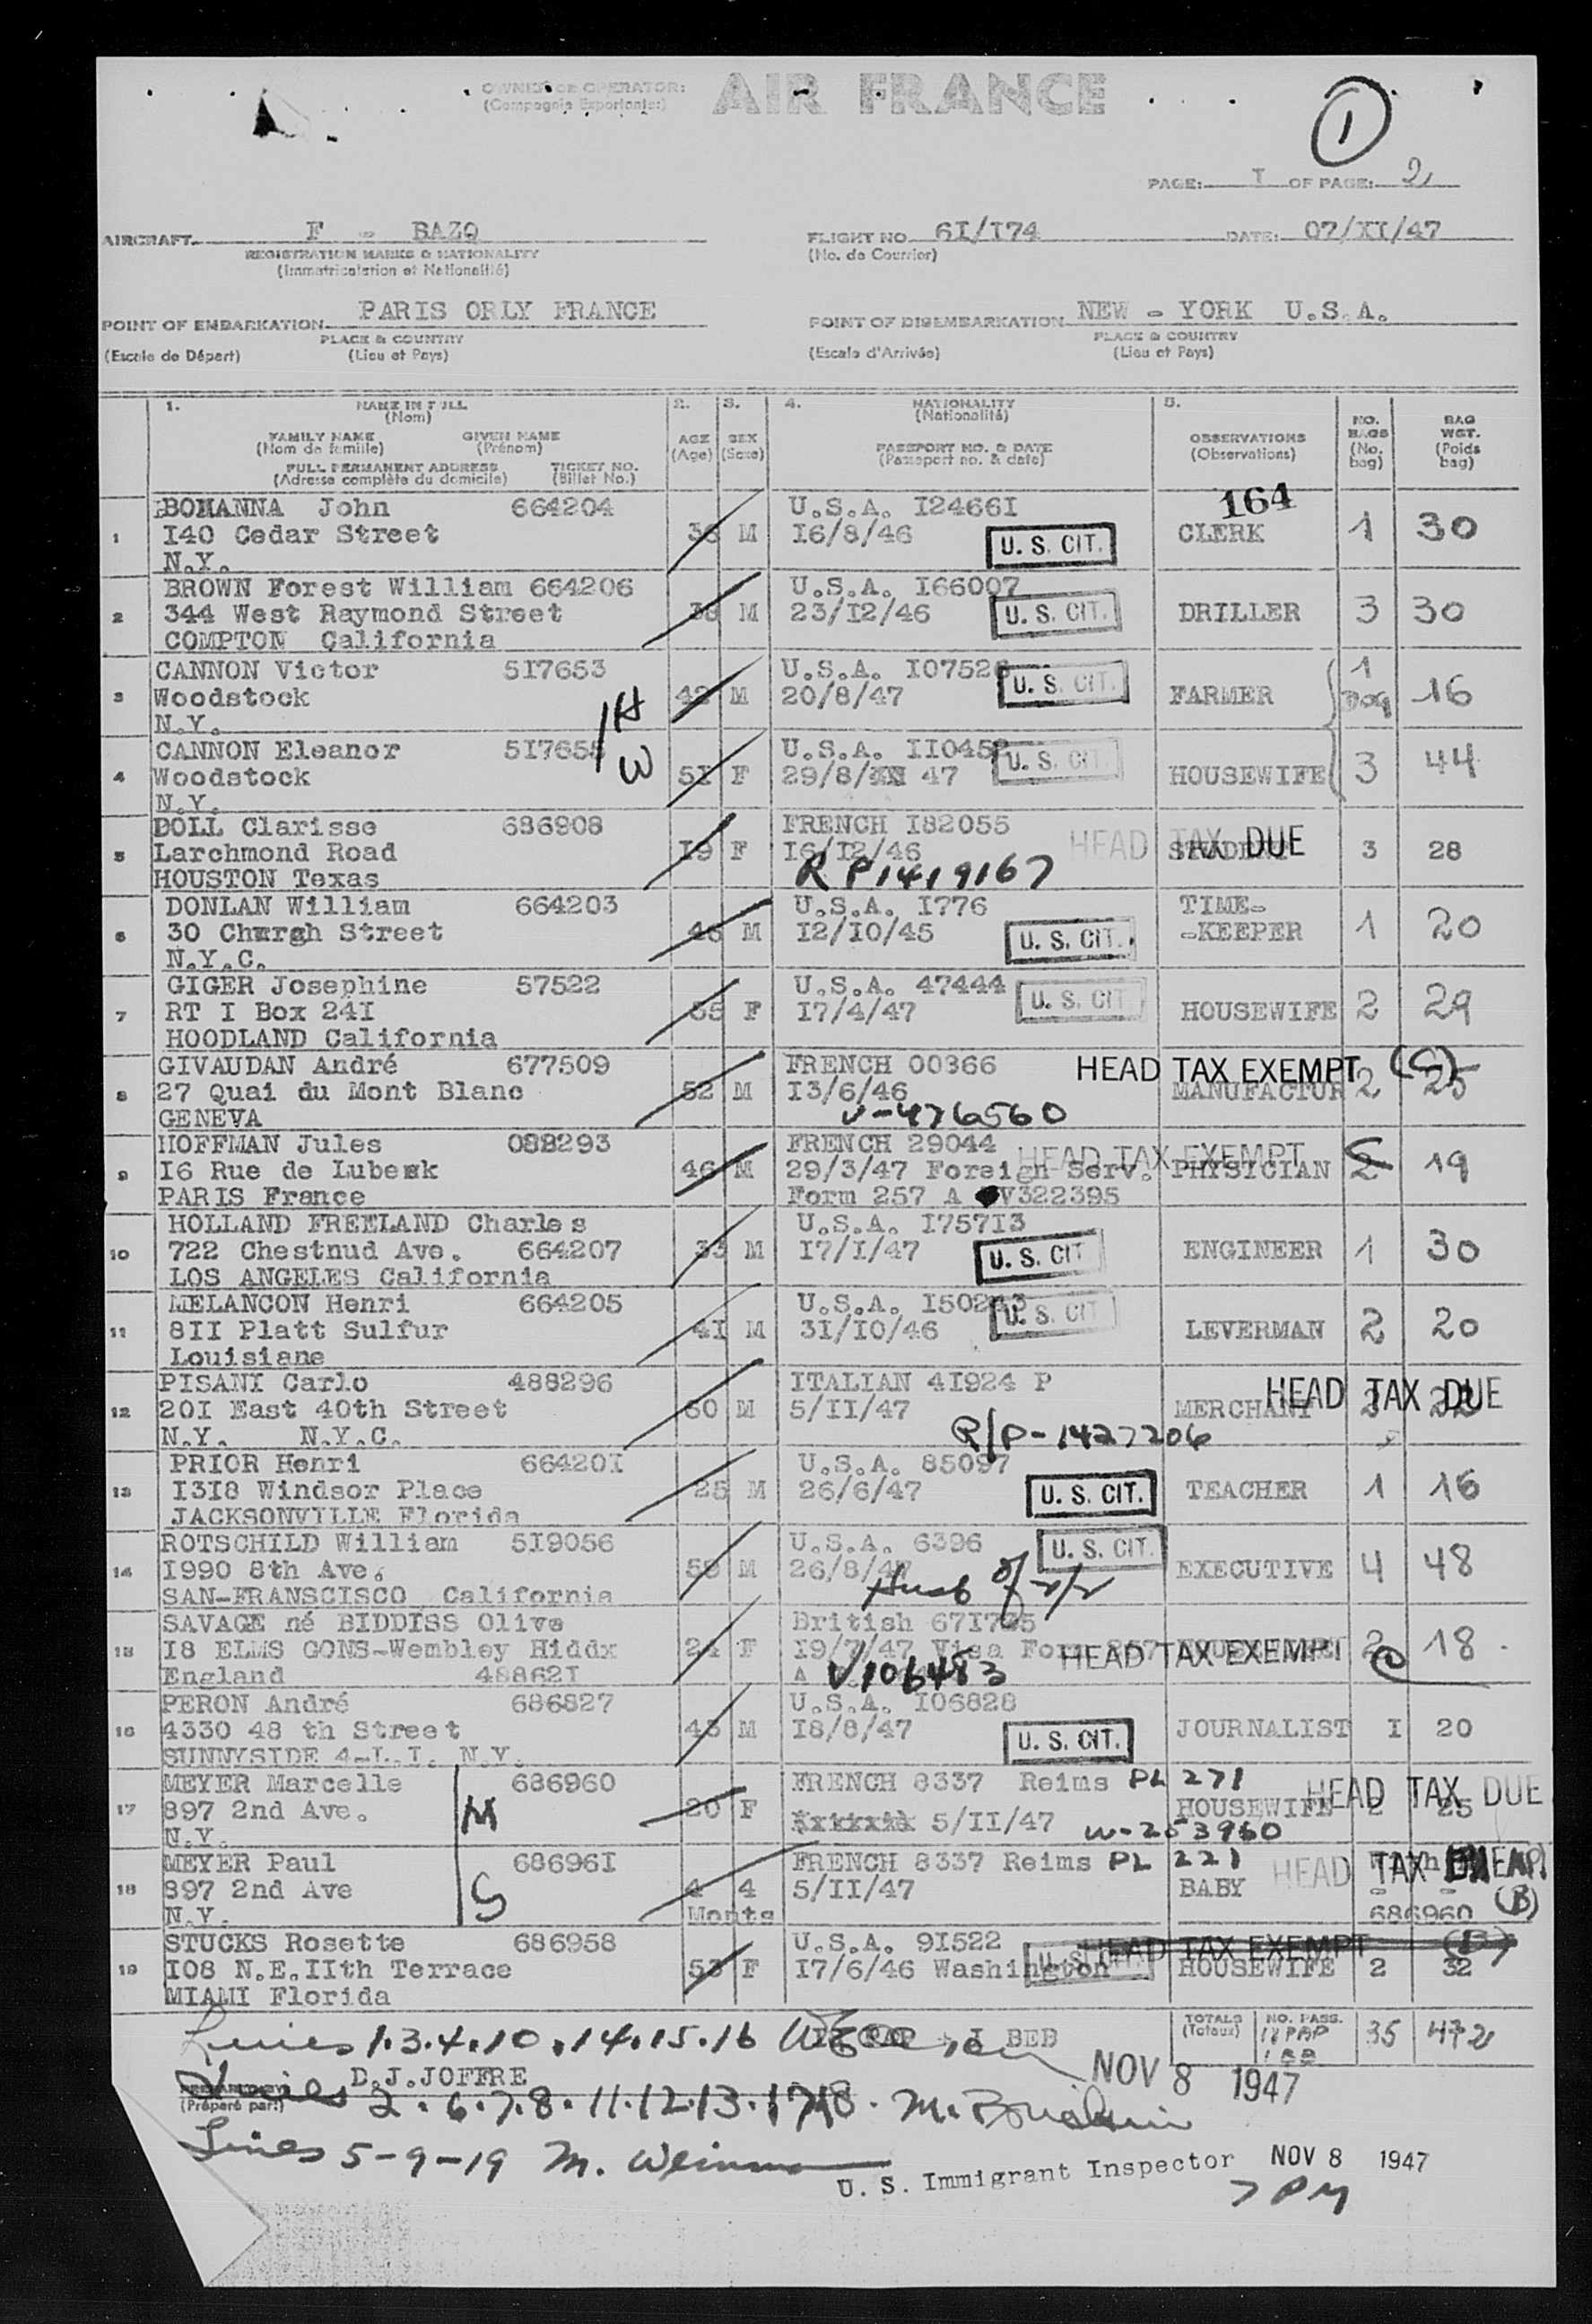 OWNER OR OPERATOR: AIR FRANCE
(Compagnie Exportante:)
1
PAGE: I OF PAGE: 2
AIRCRAFT F - BAZQ FLIGHT NO 6I/I74 DATE: 07/XI/47
REGISTRATION MARKS & NATIONALITY (No. de Courrier)
(Immatriculation et Nationalité)
POINT OF EMBARKATION PARIS ORLY FRANCE POINT OF DISEMBARKATION NEW - YORK U.S.A.
PLACE & COUNTRY PLACE & COUNTRY
(Escale de Départ) (Lieu et Pays) (Escale d'Arrivée) (Lieu et Pays)
1. NAME IN FULL 2. 3. 4. NATIONALITY 5.
(Nom) (Nationalité) NO. BAG
FAMILY NAME GIVEN NAME AGE SEX OBSERVATIONS BAGS WGT.
(Nom de famille) (Prénom) (Age) (Sexe) PASSPORT NO. & DATE (Observations) (No. (Poids
FULL PERMANENT ADDRESS TICKET NO. (Passeport no. & date) bag) bag)
(Adresse complète du domicile) (Billet No.)
164
BOHANNA John 664204 U.S.A. I2466I
1 I40 Cedar Street 36 M I6/8/46 U. S. CIT. CLERK 1 30
N.Y.
BROWN Forest William 664206 U.S.A. I66007
2 344 West Raymond Street 38 M 23/I2/46 U. S. CIT. DRILLER 3 30
COMPTON California
CANNON Victor 5I7653 U.S.A. I0752 1
3 Woodstock H 42 M 20/8/47 U. S. CIT. FARMER 16
N.Y.
CANNON Eleanor 5I7655 U.S.A. II045
4 Woodstock W 5I F 29/8/ 47 U. S. CIT. HOUSEWIFE 3 44
N.Y.
DOLL Clarisse 686908 FRENCH I82055 HEAD TAX DUE
5 Larchmond Road I9 F I6/I2/46 STUDENT 3 28
HOUSTON Texas R P1419167
DONLAN William 664203 U.S.A. I776 TIME-
6 30 Church Street 46 M I2/I0/45 U. S. CIT. -KEEPER 1 20
N.Y.C.
GIGER Josephine 57522 U.S.A. 47444
7 RT I Box 24I 55 F I7/4/47 U. S. CIT HOUSEWIFE 2 29
HOODLAND California
GIVAUDAN André 677509 FRENCH 00366 HEAD TAX EXEMPT (C)
8 27 Quai du Mont Blanc 52 M I3/6/46 MANUFACTUR 2 25
GENEVA V-476560
HOFFMAN Jules 088293 FRENCH 29044 HEAD TAX EXEMPT C
9 I6 Rue de Lubeek 46 M 29/3/47 Foreign Serv. PHYSICIAN 2 19
PARIS France Form 257 A V322395
HOLLAND FREELAND Charles U.S.A. I757I3
10 722 Chestnud Ave. 664207 33 M I7/I/47 U. S. CIT ENGINEER 1 30
LOS ANGELES California
MELANCON Henri 664205 U.S.A.
11 8II Platt Sulfur 4I M 3I/I0/46 U. S. CIT LEVERMAN 2 20
Louisiane
PISANI Carlo 488296 ITALIAN 4I924 P HEAD TAX DUE
12 20I East 40th Street 60 M 5/II/47 MERCHANT
N.Y. N.Y.C. R/P-1427206
PRIOR Henri 66420I U.S.A. 85097
13 I3I8 Windsor Place 25 M 26/6/47 U. S. CIT. TEACHER 1 16
JACKSONVILLE Florida
ROTSCHILD William 5I9056 U.S.A. 6396
14 I990 8th Ave. M 26/8/47 U. S. CIT. EXECUTIVE 4 48
SAN-FRANSCISCO California Husb of 2/2
SAVAGE né BIDDISS Olive British 67I7
15 I8 ELMS GONS-Wembley Hiddx 24 F I9/7/47 Visa HEAD TAX EXEMPT 2 18
England 48862I A V106483
PERON André 686827 U.S.A. I06828
16 4330 48 th Street 43 M I8/8/47 U. S. CIT. JOURNALIST I 20
SUNNYSIDE 4-L.I. N.Y.
MEYER Marcelle 686960 FRENCH 8337 Reims PL 271 HEAD TAX DUE
17 897 2nd Ave. M 20 F 5/II/47 HOUSEWIFE 2 25
N.Y. W-253960
MEYER Paul 68696I FRENCH 8337 Reims PL 221 HEAD TAX
18 897 2nd Ave S 4 4 5/II/47 BABY - -
N.Y. Monts 686960 (B)
STUCKS Rosette 686958 U.S.A. 9I522 HEAD TAX EXEMPT (B)
19 I08 N.E.IIth Terrace 53 F I7/6/46 Washington HOUSEWIFE 2 32
MIAMI Florida
Lines 1.3.4.10.14.15.16 I BEB TOTALS NO. PASS. 35 472
(Totaux) 18 PAP
1 BB
D.J.JOFFRE NOV 8 1947
(Préparé par:) Lines 2.6.7.8.11.12.13.17.18.
Lines 5-9-19
U. S. Immigrant Inspector NOV 8 1947
7 PM